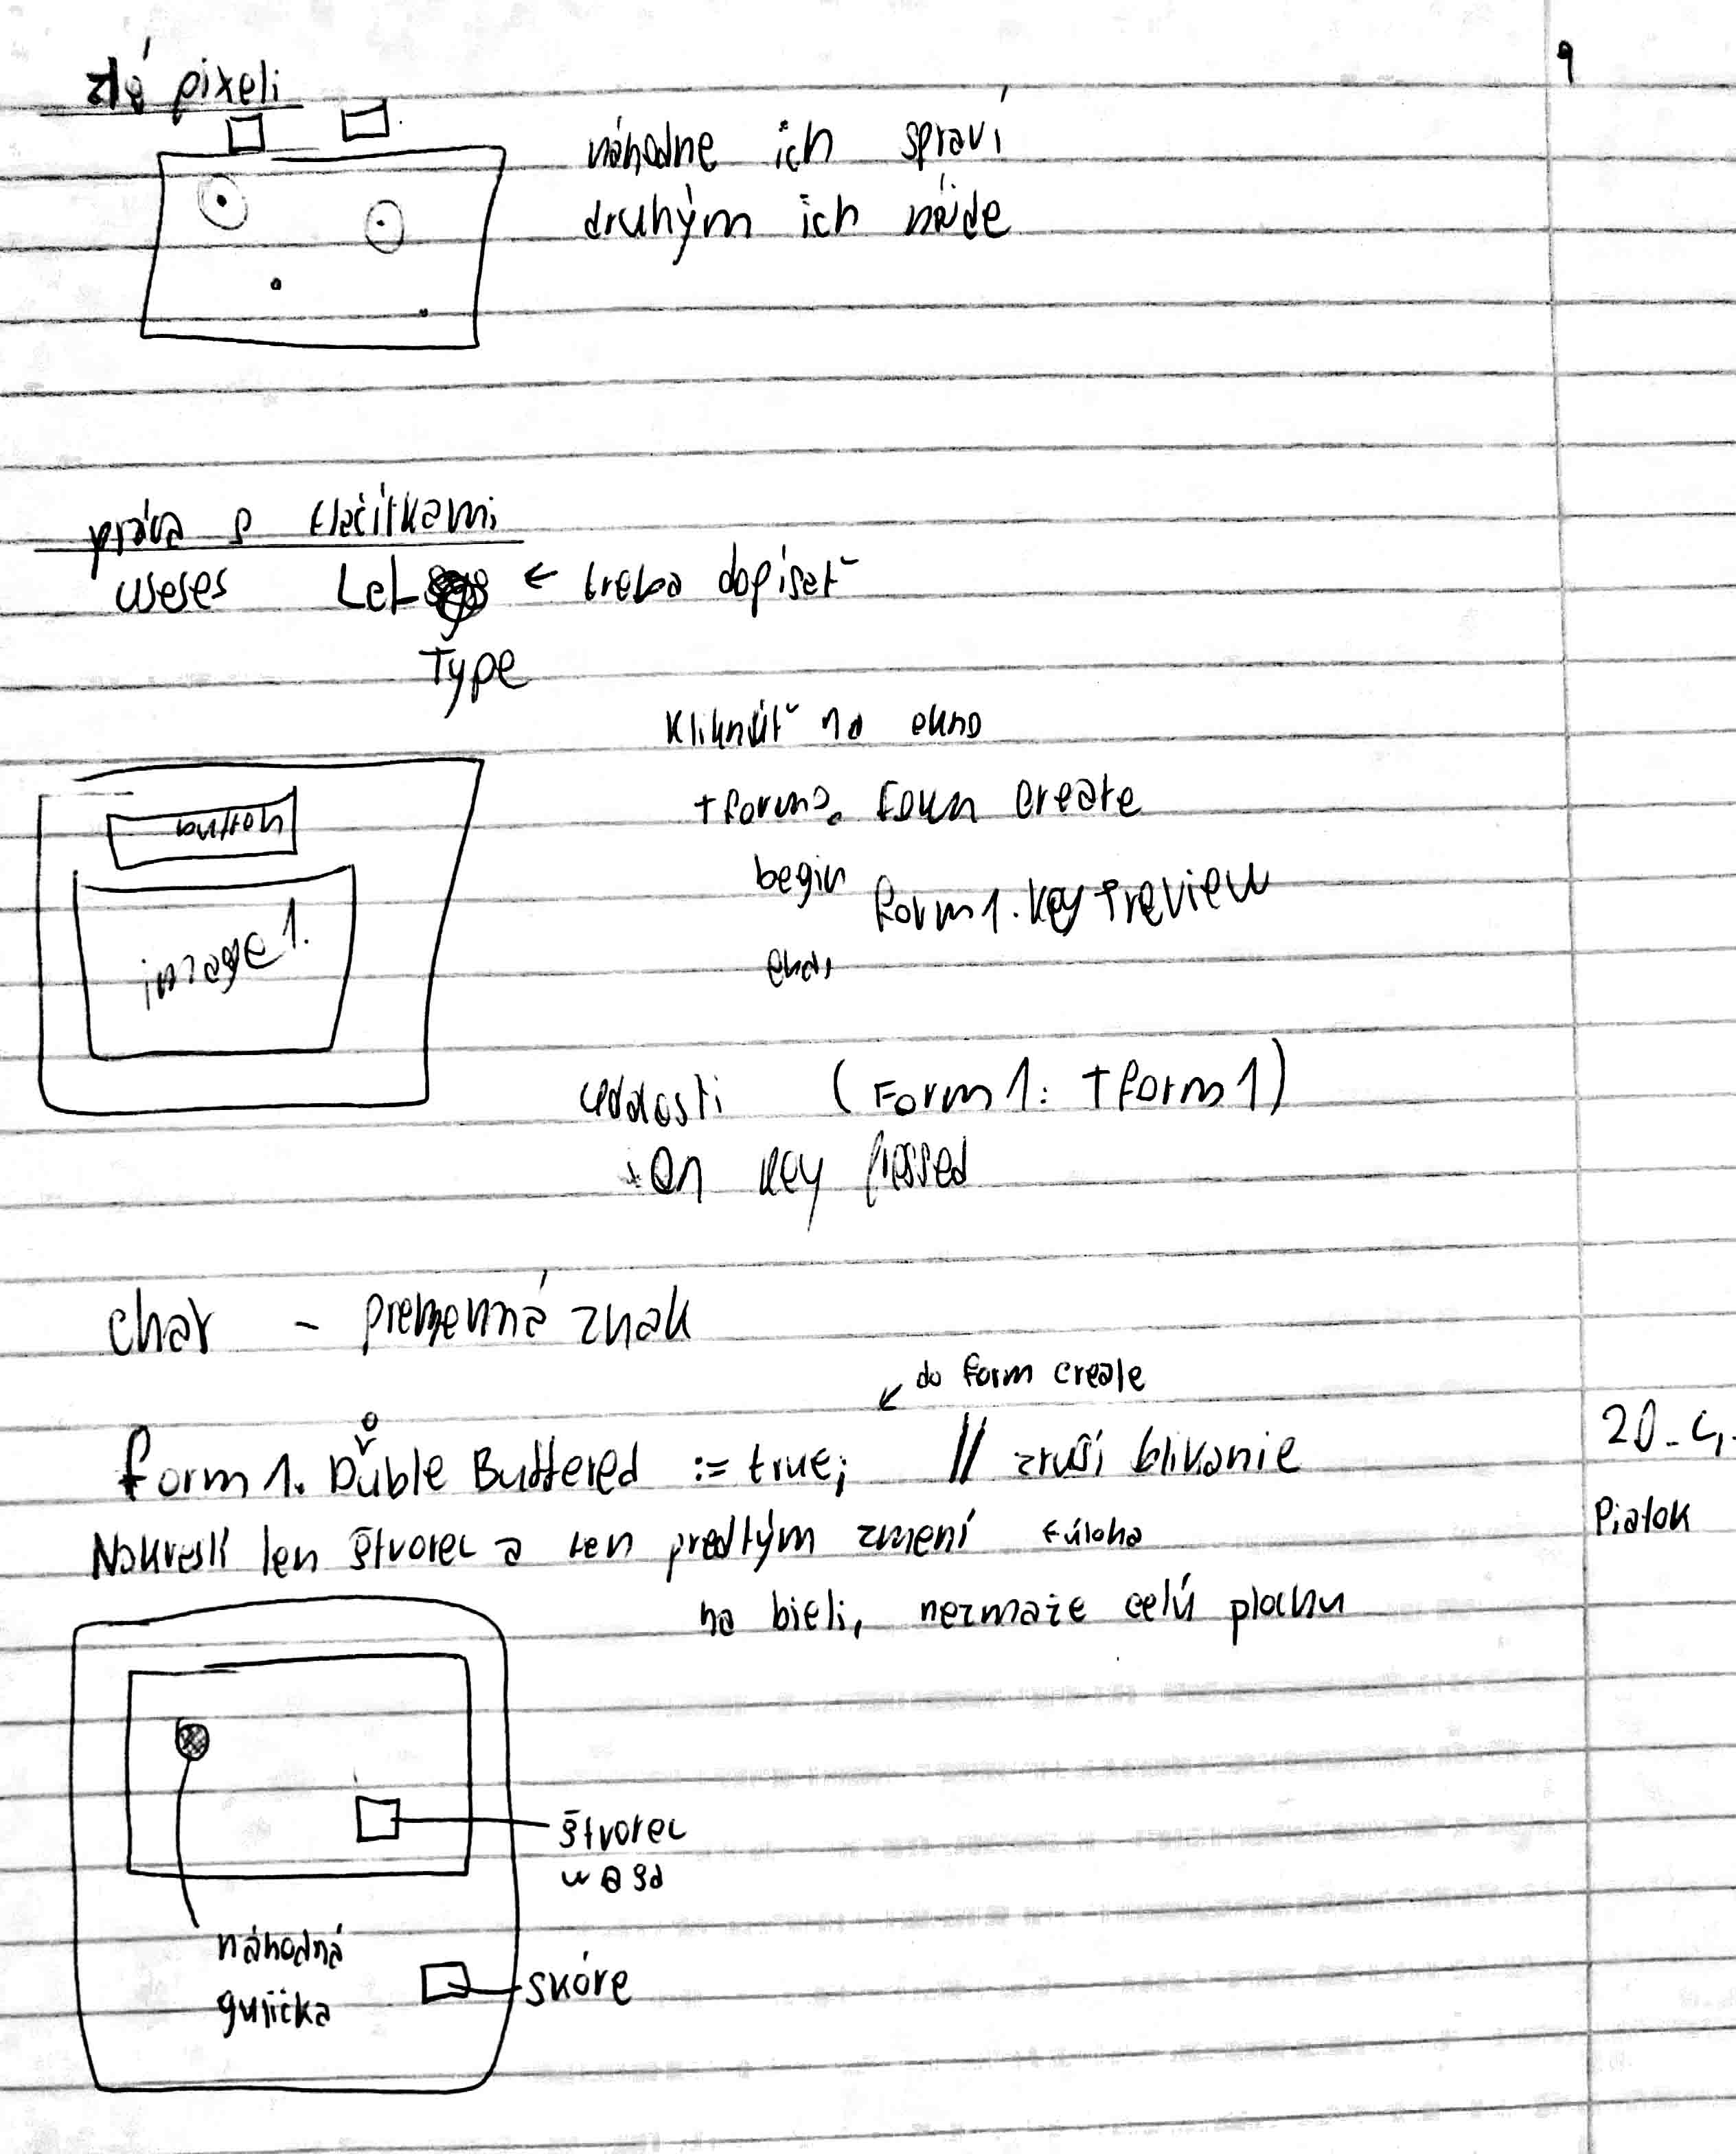 9
zlé pixeli
náhodne ich spraví
druhým ich nájde
práca s tlačítkami
useses LCL ← treba dopísať
Type
Kliknúť na okno
button
Tform1. Form Create
begin
Form1. Key Preview
image 1.
end;
udalosti (Form 1: Tform 1)
On key pressed
char - premenná znak
do form create
form 1. Důble Buffered := true; // zruší blikanie
20. 4.
Piatok
Nakreslí len štvorec a ten predtým zmení ←úloha
na bieli, nezmaže celú plochu
štvorec
wasd
náhodná
gulička
skóre